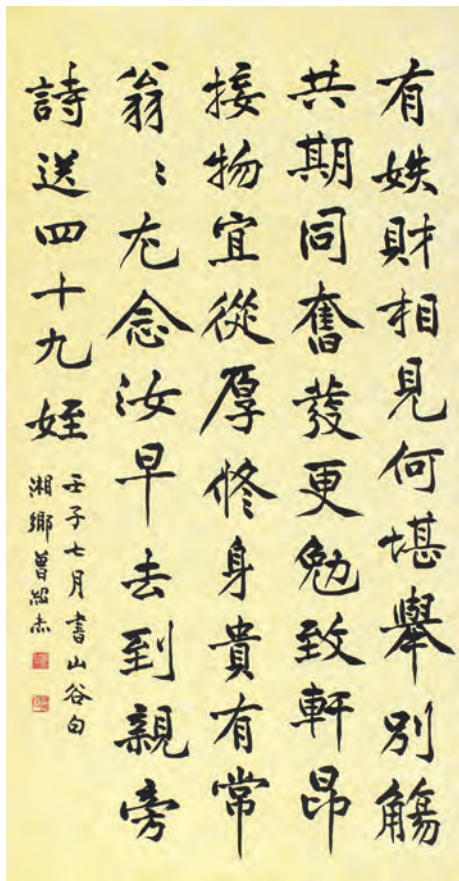 有妷財相見何堪舉別觴
共期同奮發更勉致軒昂
接物宜從厚修身貴有常
翁〻尤念汝早去到親旁
詩送四十九姪
壬子七月書山谷句
湘鄉曾紹杰